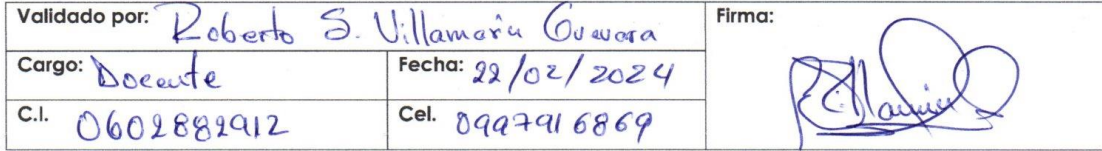 Validado por: Roberto S. Villamarín Guevara Firma:
Cargo: Docente Fecha: 22/02/2024
C.I. 0602882912 Cel. 0997916869